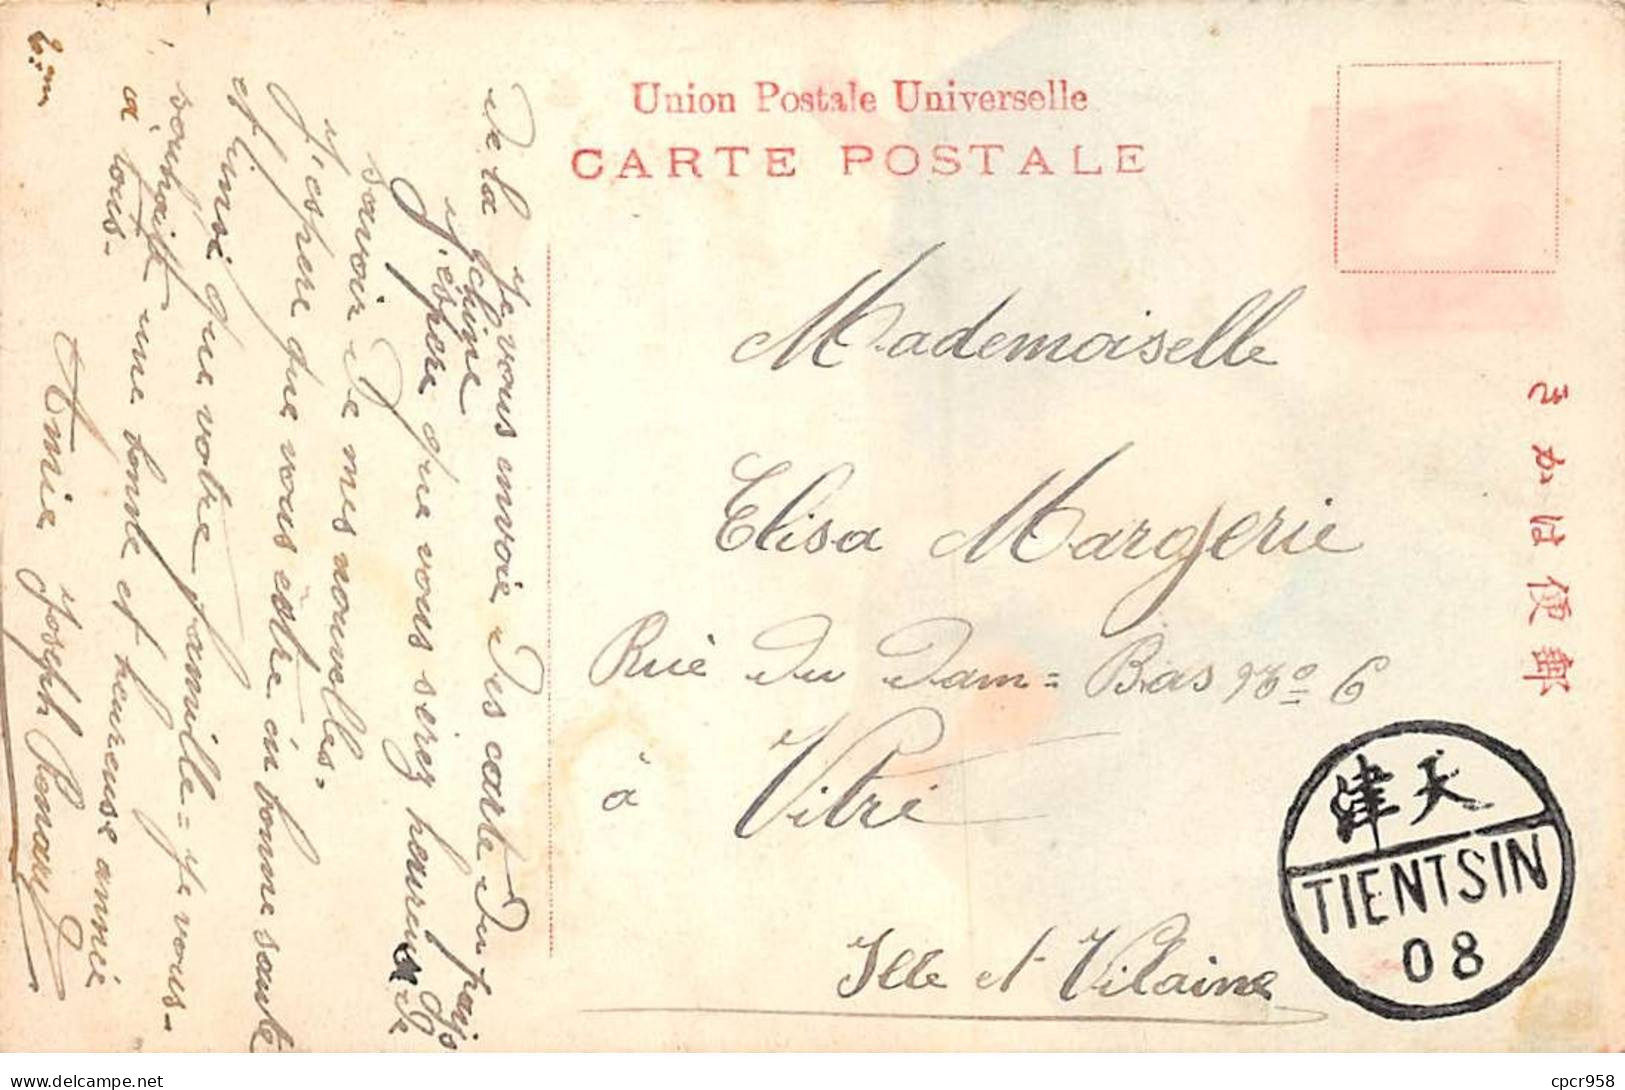 Union Postale Universelle
CARTE POSTALE
Je vous envoie des carte du pays
de la Chine
J'espère que vous serez heureux de
savoir de mes nouvelles.
J'espère que vous estre en bonne sante
et linné que votre famille = Je vous
souhaite une bonne et heureuse année
à tous.
Amie Joseph Renard
Mademoiselle
Elisa Margerie
Rue du Dam = Bas No 6
à Vitré
Ille et Vilaine
きかは便郵
津天
TIENTSIN
08
delcampe.net
cpcr958